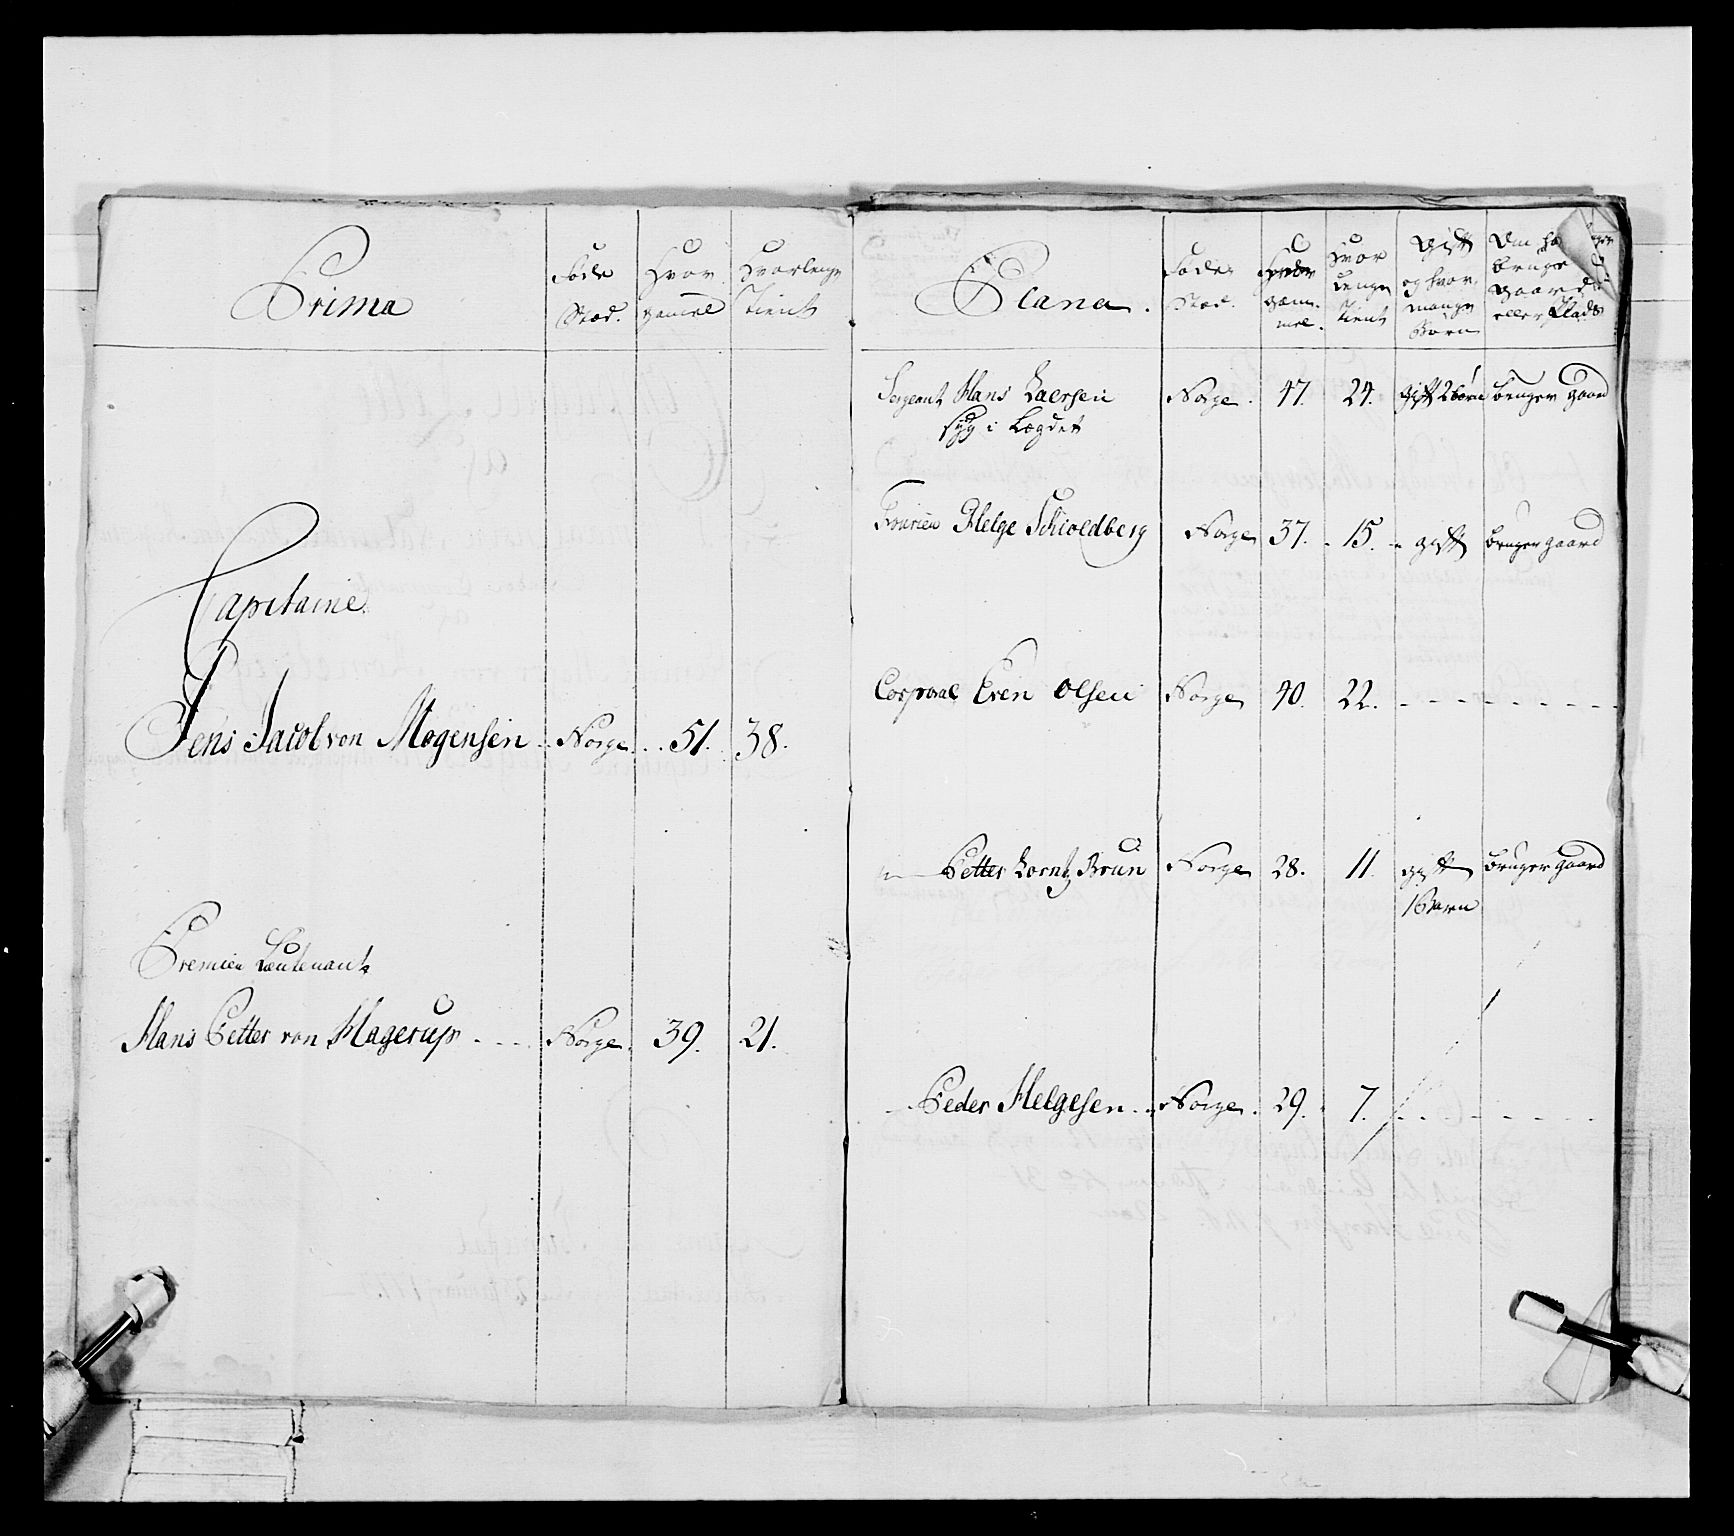 Prima
Føde Stæd.
Hvor gammel
Hvorlenge Tient
Capitaine
Jens Jacob von Mogensen .. Norge. .. 51. 38.
Premier Lieutenant
Hans Petter von Hagerup .... Norge. 39. 21.
Plana.
Føde Stæd.
Hvor gammel.
Hvor Lenge Tient
Gift og hvor mange Børn
bruger Gaard eller Plads
Sergeant Hans Laersen Norge. 47. 24. gift 2 børn bruger gaard
syg i Lægdet
Fourier Helge Schioldberg Norge 37. 15. gift bruger gaard
Corporal Even Olsen Norge 40. 22. - - - - - -
Petter Lorntz Brun Norge 28. 11. gift bruger gaard
1 Barn
Peder Helgesen .. Norge. 29. 7. - - - - - -